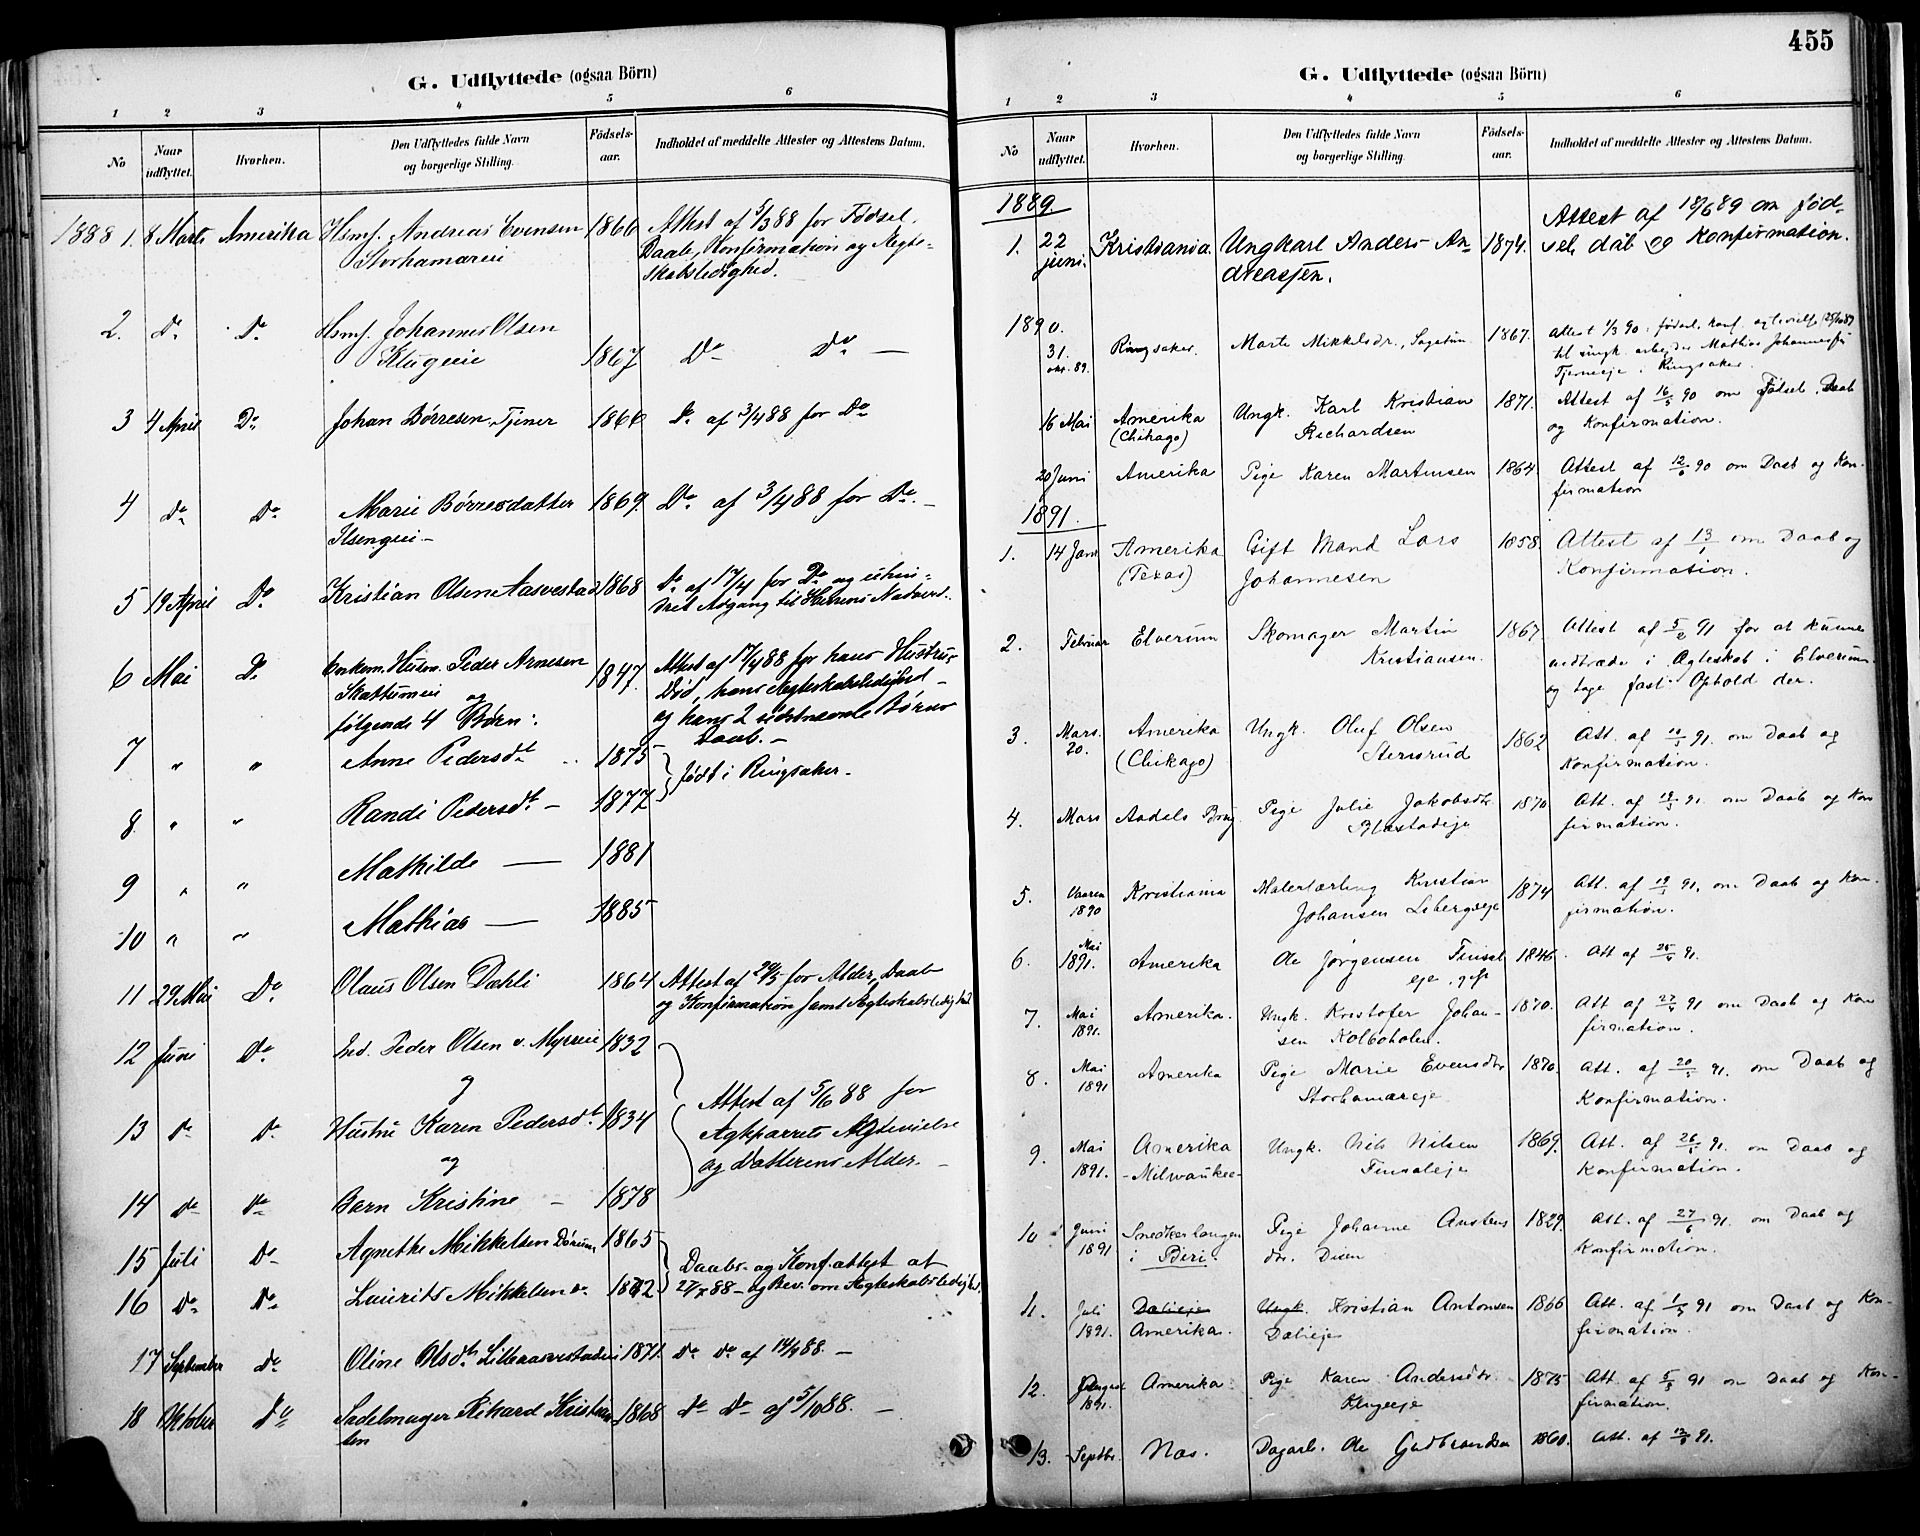 G. Udflyttede (ogsaa Börn)
1 2 3 4 5 6
No Naar udflyttet. Hvorhen. Den Udflyttedes fulde Navn og borgerlige Stilling. Fødsels-aar. Indholdet af meddelte Attester og Attestens Datum.
1888 1. 8 Marts Amerika Hsmf. Andreas Evensen 1866 Attest af 5/3 88 for Fødsel,
Storhamareie Daab, Konfirmation og Ægte-
skabsledighed.
2. Do Do Hsmf. Johannes Olsen
Klugeeie 1867 Do Do —
3 4 April Do Johan Børresen, Tjener 1866 Do af 3/4 88 for Do
4 Do Do Marie Børresdatter 1869. Do af 3/4 88 for Do. —
Ilsengeie —
5 19 April Do Kristian Olsen Aasvestad 1868 Do af 17/4 for Do og uhin-
dret Adgang til Herrens Nadverd.
6 Mai Do Enkem. Husm. Peder Arnesen 1847. Attest af 17/4 88 for hans Hustrus
Skattumeie og Død, hans Ægteskabsledighed —
følgende 4 Børn: og hans 2 sidstnævnte Børns
Daab. —
7 " " Anne Pedersdt 1875
født i Ringsaker —
8 " " Randi Pedersdt — 1877
9 " " Mathilde — 1881
10 " " Mathias — 1885
11 29 Mai Do Olaus Olsen Dæhli 1864 Attest af 29/5 for Alder, Daab
og Konfirmation samt Ægteskabsledighed
12 Juni Do Ind. Peder Olsen v. Myreeie 1832
og Attest af 5/6 88 for
13 Do Do Hustru Karen Pedersdt. 1834 Ægteparrets Ægtevielse
og og Datterens Alder. —
14 Do Do Barn Kristine — 1878
15 Juli Do Agnethe Mikkelsen 1865 Daabs- og Konf. attest af
16 Do Do Laurits Mikkelsen Do 1872. 27/7 88 — og Bev. om Ægteskabsledighed.
17 September Do Oline Olsdt. Lilleaasvestadeie 1871. Do Do af 14/9 88. —
18 Oktober Do Sadelmager Rikard Kristian- 1868 Do Do af 5/10 88. —
sen
455
G. Udflyttede (ogsaa Börn)
1 2 3 4 5 6
No Naar udflyttet. Hvorhen. Den Udflyttedes fulde Navn og borgerlige Stilling. Fødsels-aar. Indholdet af meddelte Attester og Attestens Datum.
1889. Attest af 18/6 89 om fød-
1. 22 juni. Kristiania. Ungkarl Anders An- 1874. sel, dåb og Konfirmation.
dreassen.
1890.
31. okt. 89. Ringsaker. Marte Mikkelsdr., Sagetun 1867. Attest 1/3 90: fødsel, konf. og levielse (25/10 89)
til ungk. arbeider Mathias Johannessen
Tjerneeje i Ringsaker.
16 Mai Amerika Ungk. Karl Kristian 1871. Attest af 16/5 90 om Fødsel, Daab
(Chikago) Richardsen og Konfirmation.
20 Juni Amerika Pige Karen Martinsen 1864 Attest af 12/6 90 om Daab og Kon-
firmation
1891.
1. 14 Jan Amerika Gift Mand Lars 1858. Attest af 13/1 om Daab og
(Texas) Johannesen Konfirmation.
2. Februar Elverum Skomager Martin 1867 Attest af 5/2 91 for at kunne
Kristiansen. indtræde i Ægteskab i Elverum
og tage fast Ophold der.
3. Mars. 20. Amerika Ungk. Oluf Olsen 1862 Att. af 10/3 91. om Daab og
(Chikago) Stensrud Konfirmation.
4. Mars Aadels Brug. Pige Julie Jakobsdtr. 1870 Att. af 19/3 91. om Daab og Kon
firmation.
5. Vaaren 1890 Kristiania Malerlærling Kristian 1874 Att. af 19/3 91. om Daab og Kon-
Johansen Libergseje firmation.
6. Mai 1891. Amerika Ole Jørgensen Finsal 1846. Att af 25/4 91.
eje. gift
7. Mai 1891. Amerika. Ungk. Kristofer Johan- 1870. Att. af 27/4 91 om Daab og Kon
sen Kolboholen. firmation.
8. Mai 1891 Amerika Pige Marie Evensdtr. 1870. Att. af 20/5 91. om Daab og
Storhamareje Konfirmation.
9. Mai 1891. Amerika Ungk. Nils Nilsen 1869. Att. af 26/5 91. om Daab og
-Milwaukee- Finsaleje Konfirmation.
10 Juni 1891 Snedkerlaugen Pige Johanne Austens 1829. Att. af 27/6 91. om Daab og
i Biri dr. Dien Konfirmation.
11. Juli 1891. Dælieje Ungk. Kristian Antonsen 1866 Att. af 1/7 91 om Daab og Kon-
Amerika. Dælieje firmation.
12. August 1891. Amerika. Pige Karen Andersdtr. 1875 Att. af 5/8 91 om Daab og Kon-
Klugeeje firmation.
13. Septbr. Næs. Dagarb. Ole Gudbrandsen 1860. Att. af 12/9 91.